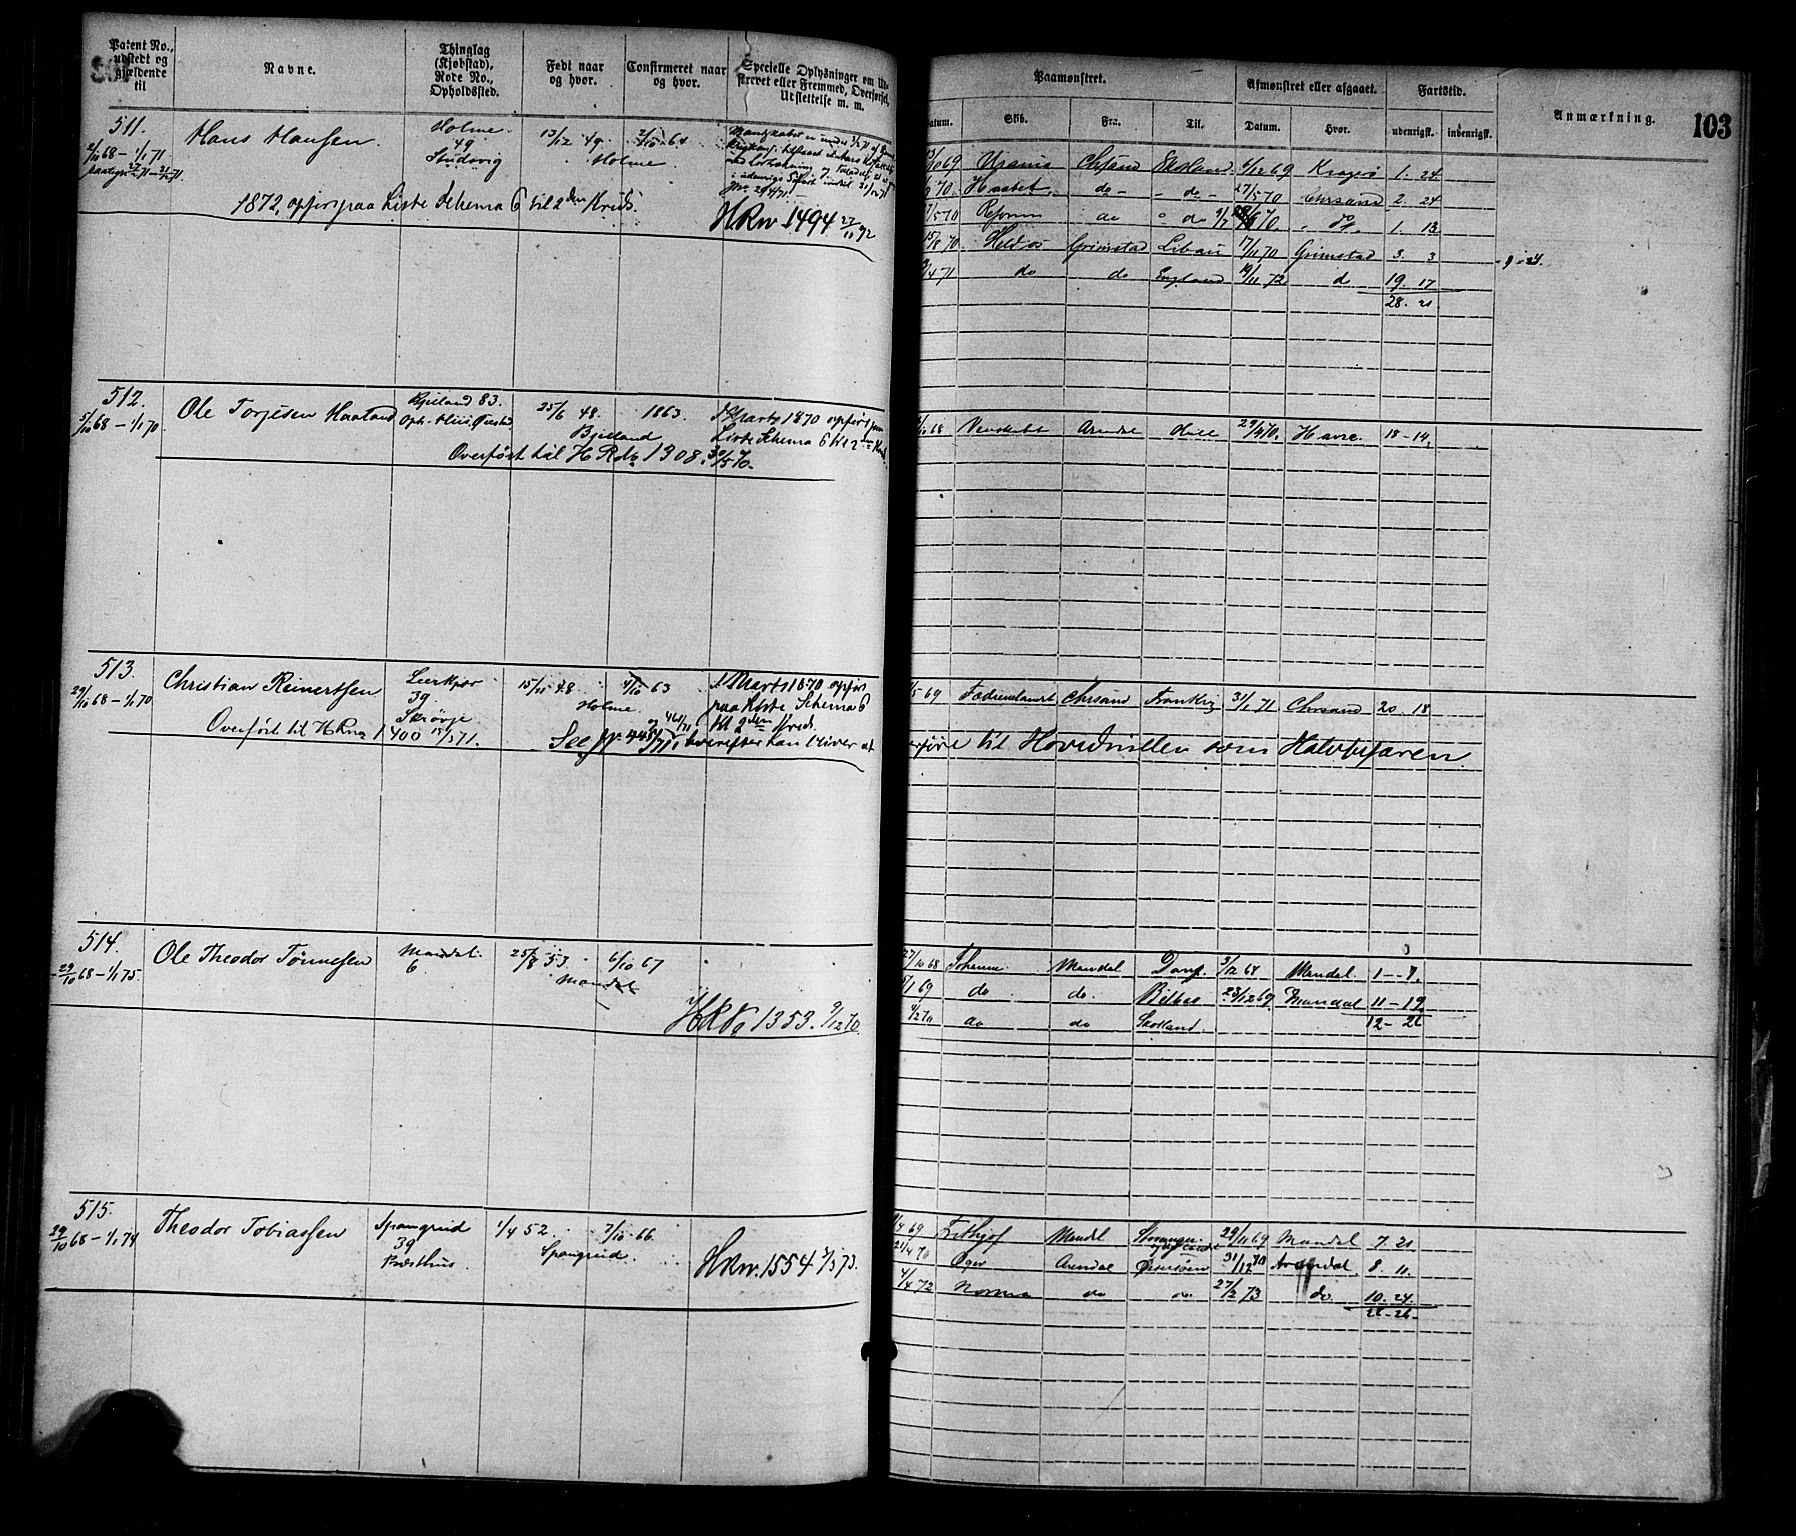 Patent No., udstedt og gjældende til
Navne.
Thinglag (Kjøbstad), Rode No., Opholdssted.
Født naar og hvor.
Confirmeret naar og hvor.
Specielle Oplysninger om Udskrevet eller Fremmed, Overførsel, Udslettelse m. m.
Paamønstret.
Datum.
Skib.
Fra.
Til.
Afmønstret eller afgaaet.
Datum.
Hvor.
Fartstid.
udenrigsk.
indenrigsk.
Anmærkning.
103
511.
2/10 68 – 1/1 71
Hans Hansen
Holme.
49
Studevig
13/12 49.
Holme.
2/10 64
1872, opført paa Liste Schema 6 til 2den Kreds.
HRN 1494 27/11 72
10 69 Urania Chrsand 6/12 69 Kragerø 1. 24
70. Haabet do do 27/5 70 Chrsand 2. 24
5 70 Reform do do 70. do. 1. 13
15/8 70 Grimstad Libau 17/11 70 Grimstad 3. 3
4 71 do do England 19/11 72 d 19. 17
28. 21.
512.
5/10 68 – 1/1 70
Ole Torjesen Haaland
Bjelland 83.
25/6 48.
Bjelland
1863.
I Marts 1870 opført paa
Liste Schema 6 til 2den Kreds
Overført til HRN 1308. 30/5 70.
10 68 Venskabet Arendal Hull 29/4 70. Havre. 18 – 14.
513.
29/10 68 – 1/1 70
Christian Reinertsen
39
15/11 48
Holme.
4/10 63
I Marts 1870 opført
paa Liste Schema 6
til 2den Kreds.
Overført til HRN 1400 15/3 71.
hvorefter han bliver at
5 69 Fædrenelandet Chrsand Frankrig 31/1 71 Chrsand 20. 18
overføre til Hovedrullen som Halvbefaren.
514.
29/10 68 – 1/1 75.
Ole Theodor Tönnesen
Mandal.
6
25/8 53
Mandal
6/10 67
HRNo 1353. 9/12 70
27/10 68 Johanne Mandal 3/12 68 Mandal. 1 – 7.
1 69 do do. Bilbao 23/12 69 Mandal 11 – 19
2 70 do do Skotland.
12 – 26
515.
29/10 68 – 1/1 74
Theodor Tobiassen
Spangreid
39
Presthus.
1/4 52
Spangreid.
7/10 66
HRN. 1554 3/3 73.
4 69 Fridthjof Mandal Stavanger 29/11 69 Mandal 7. 21
21/4 70 Øger Arendal Østersøen 31/12 70 Arendal. 8. 11.
4/4 72 Norma do do 27/2 73 do 10. 24.
26 – 26